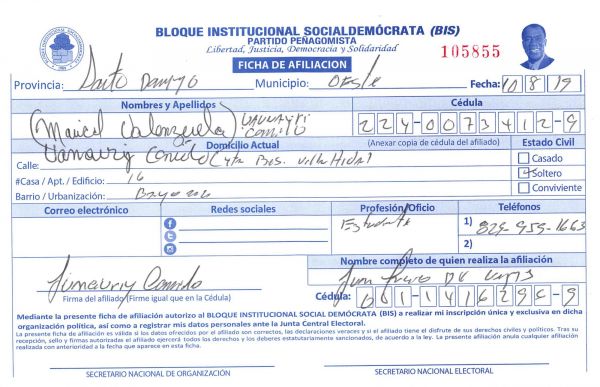 BLOQUE INSTITUCIONAL SOCIALDEMÓCRATA (BIS)
PARTIDO PEÑAGOMISTA
Libertad, Justicia, Democracia y Solidaridad
105855
FICHA DE AFILIACION
Provincia: Santo Domingo Municipio: Oeste Fecha: 10 8 19
Nombres y Apellidos Cédula
(Maricel Valenzuela)
224-0073412-9
Domicilio Actual (Anexar copia de cédula del afiliado) Estado Civil
Calle: Casado
#Casa / Apt. / Edificio: 16 Soltero
Barrio / Urbanización: Conviviente
Correo electrónico Redes sociales Profesión/Oficio Teléfonos
Estudiante 1) 829-959-1663
2)
Nombre completo de quien realiza la afiliación
Firma del afiliado (Firme igual que en la Cédula)
Cédula: 001-1416296-9
Mediante la presente ficha de afiliación autorizo al BLOQUE INSTITUCIONAL SOCIAL DEMÓCRATA (BIS) a realizar mi inscripción única y exclusiva en dicha
organización política, así como a registrar mis datos personales ante la Junta Central Electoral.
La presente ficha de afiliación es válida si los datos ofrecidos por el afiliado son correctos, las declaraciones veraces y si el afiliado tiene el disfrute de sus derechos civiles y políticos. Tras su
recepción, sello y firmas autorizadas el afiliado ejercerá todos los derechos y los deberes estatutariamente sancionados, de acuerdo a la ley. La presente afiliación anula cualquier afiliación
realizada con anterioridad a la fecha que aparece en esta ficha.
SECRETARIO NACIONAL DE ORGANIZACIÓN SECRETARIO NACIONAL ELECTORAL